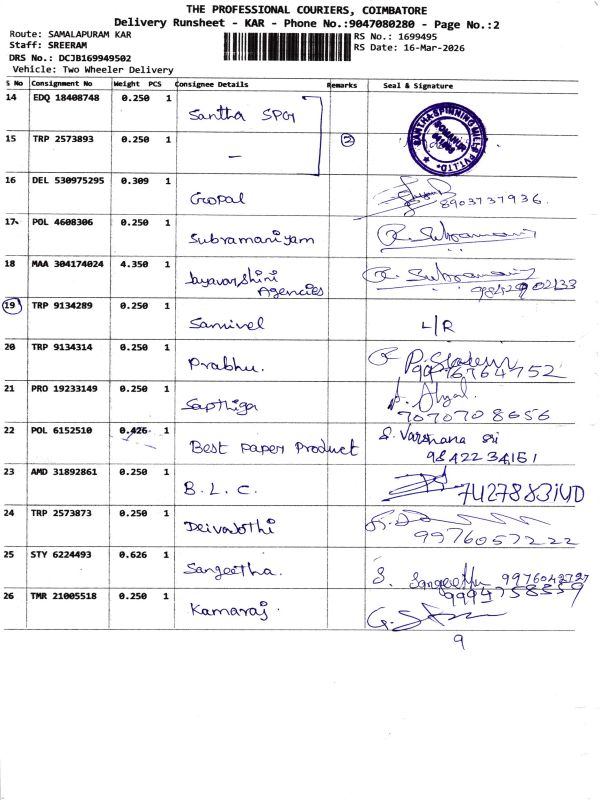 THE PROFESSIONAL COURIERS, COIMBATORE
Delivery Runsheet - KAR - Phone No.:9047080280 - Page No.:2
Route: SAMALAPURAM KAR
RS No.: 1699495
Staff: SREERAM
RS Date: 16-Mar-2026
DRS No.: DCJB169949502
Vehicle: Two Wheeler Delivery
S No Consignment No Weight PCS Consignee Details Remarks Seal & Signature
14 EDQ 18408748 0.250 1 Santha SPG
15 TRP 2573893 0.250 1 - 2
SANTHA SPINNING MILLS PVT LTD
16 DEL 530975295 0.309 1 Gopal 8903737936.
17 POL 4608306 0.250 1 Subramaniyam R. Subramani
18 MAA 304174024 4.350 1 Jayavarshini Agencies R. Subramani
19 TRP 9134289 0.250 1 Samivel L/R
20 TRP 9134314 0.250 1 Prabhu. 9976764752
21 PRO 19233149 0.250 1 Sapthiga 7070708656
22 POL 6152510 0.426 1 Best Paper Product S. Varshana sri
9842234151
23 AMD 31892861 0.250 1 B. L. C.
24 TRP 2573873 0.250 1 Deivajothi 9976057222
25 STY 6224493 0.626 1 Sangeetha. S. Sangeetha 9976042727
26 TMR 21005518 0.250 1 Kamaraj. 9994758559
9